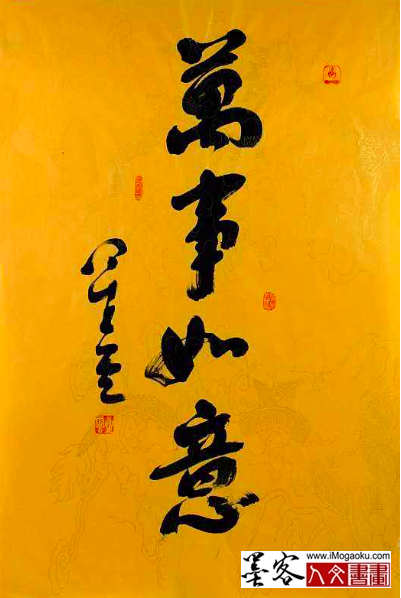 萬事如意
墨客
www.iMogaoku.com
人文書畫